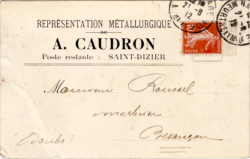 REPRÉSENTATION MÉTALLURGIQUE
A. CAUDRON
Poste restante : SAINT-DIZIER
Monsieur Roussel
Besançon
Doubs